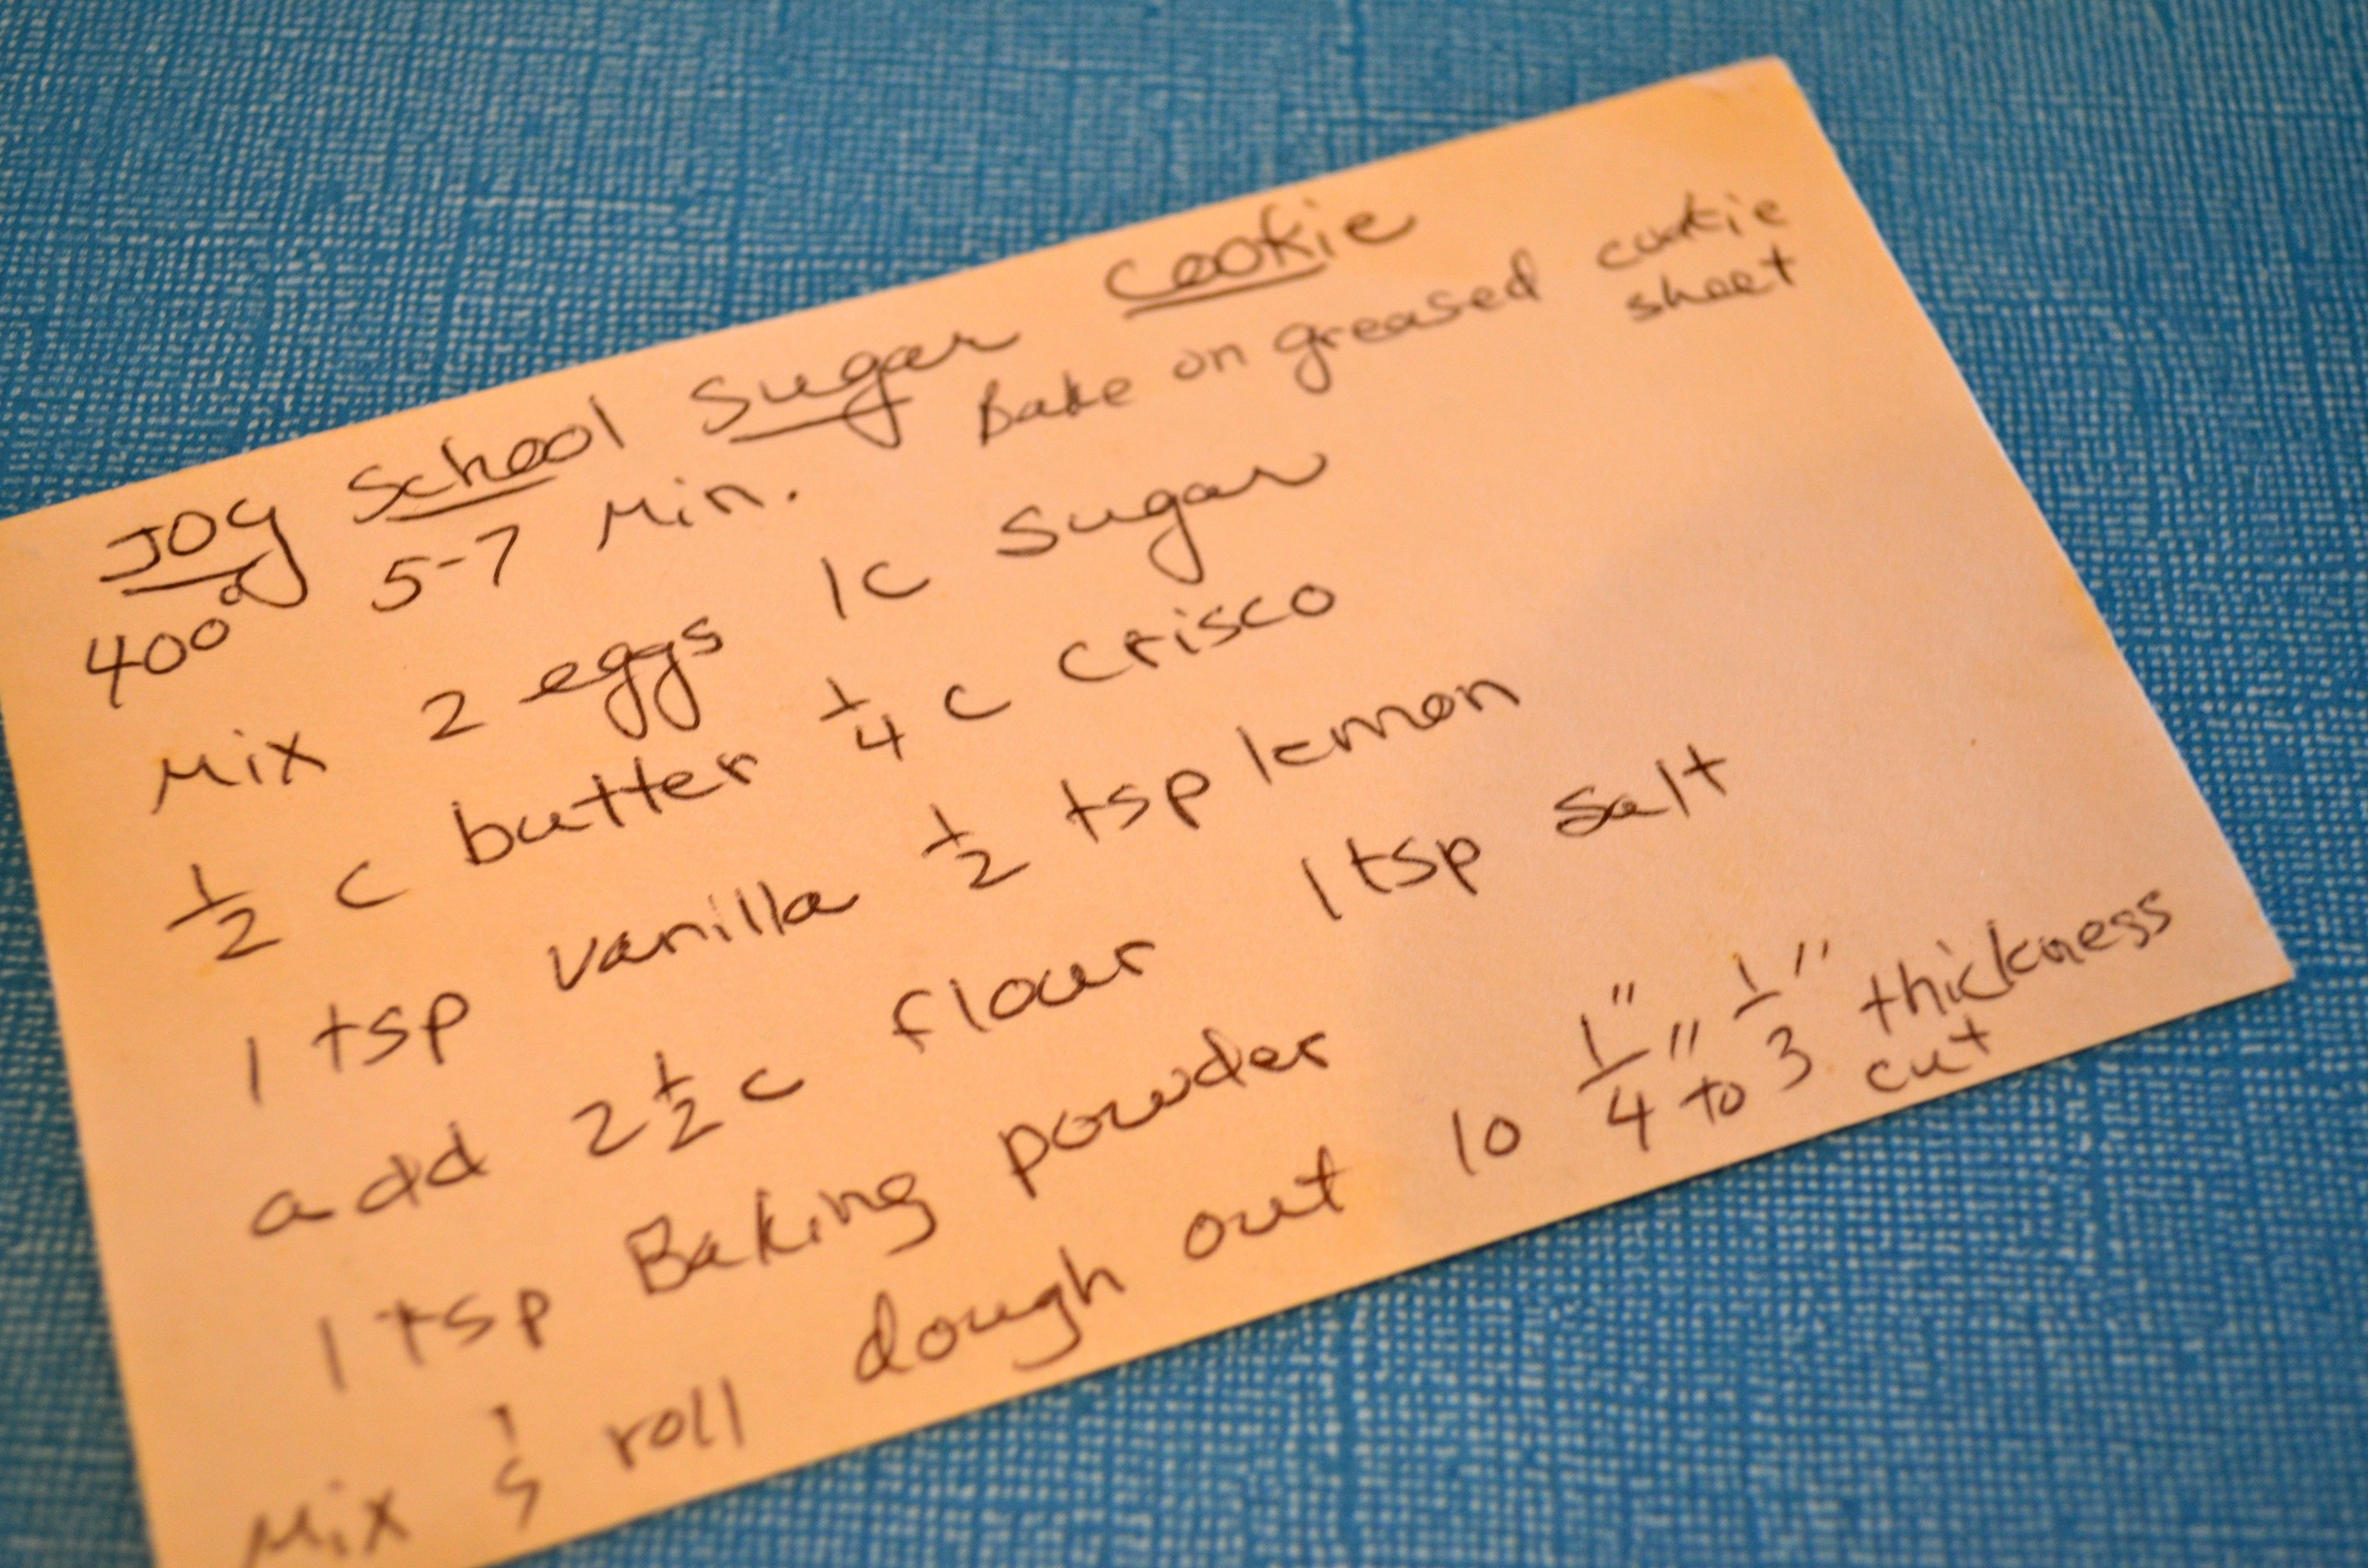 Joy School Sugar Cookie
400° 5-7 Min. Bake on greased cookie sheet
Mix 2 eggs 1c sugar
1/2 c butter 1/4 c crisco
1 tsp vanilla 1/2 tsp lemon
add 2 1/2 c flour 1 tsp salt
1 tsp Baking powder
Mix & roll dough out to 1/4" to 1/3" thickness
cut